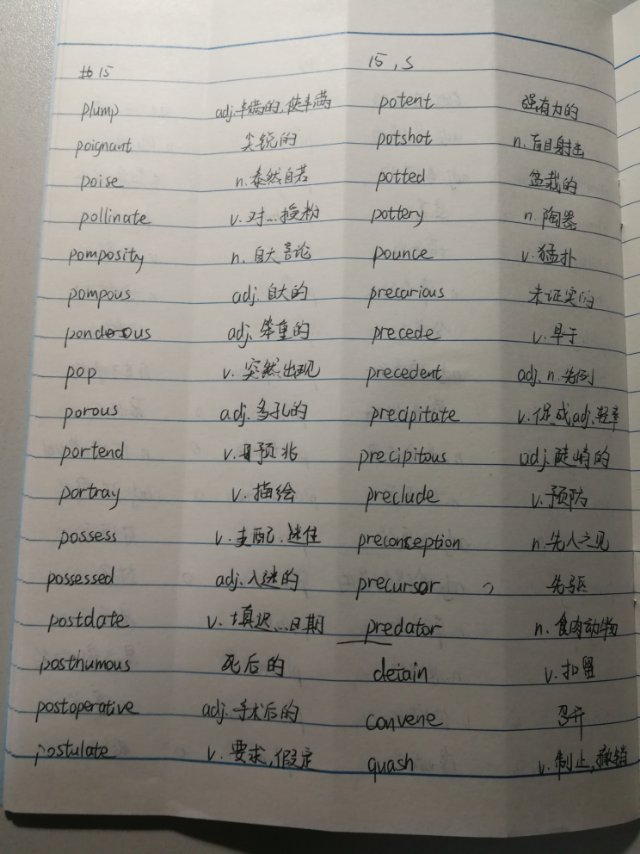 #15 15,S
plump adj.丰满的.使丰满 potent 强有力的
poignant 尖锐的 potshot n.盲目射击
poise n.泰然自若 potted 盆栽的
pollinate v.对…授粉 pottery n.陶器
pomposity n.自大言论 pounce v.猛扑
pompous adj.自大的 precarious 未证实的
ponderous adj.笨重的 precede v.早于
pop v.突然出现 precedent adj.n.先例
porous adj.多孔的 precipitate v.促成,adj.轻率
portend v.预兆 precipitous adj.陡峭的
portray v.描绘 preclude v.预防
possess v.支配.迷住 preconception n.先入之见
possessed adj.入迷的 precursor 先驱
postdate v.填迟…日期 predator n.食肉动物
posthumous 死后的 detain v.扣留
postoperative adj.手术后的 convene 召开
postulate v.要求,假定 quash v.制止,撤销